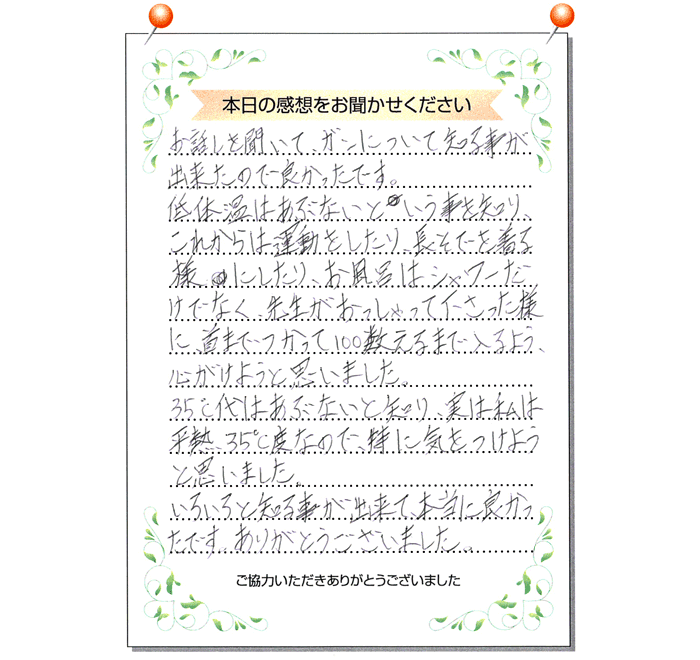 本日の感想をお聞かせください
お話しを聞いて、ガンについて知る事が
出来たので良かったです。
低体温はあぶないという事を知り、
これからは運動をしたり、長そでを着る
様にしたり、お風呂はシャワーだ
けでなく、先生がおっしゃって下さった様
に、首までつかって100数えるまで入るよう、
心がけようと思いました。
35℃代はあぶないと知り、実は私は
平熱、35℃度なので、特に気をつけよう
と思いました。
いろいろと知る事が出来て、本当に良かっ
たです。ありがとうございました。
ご協力いただきありがとうございました